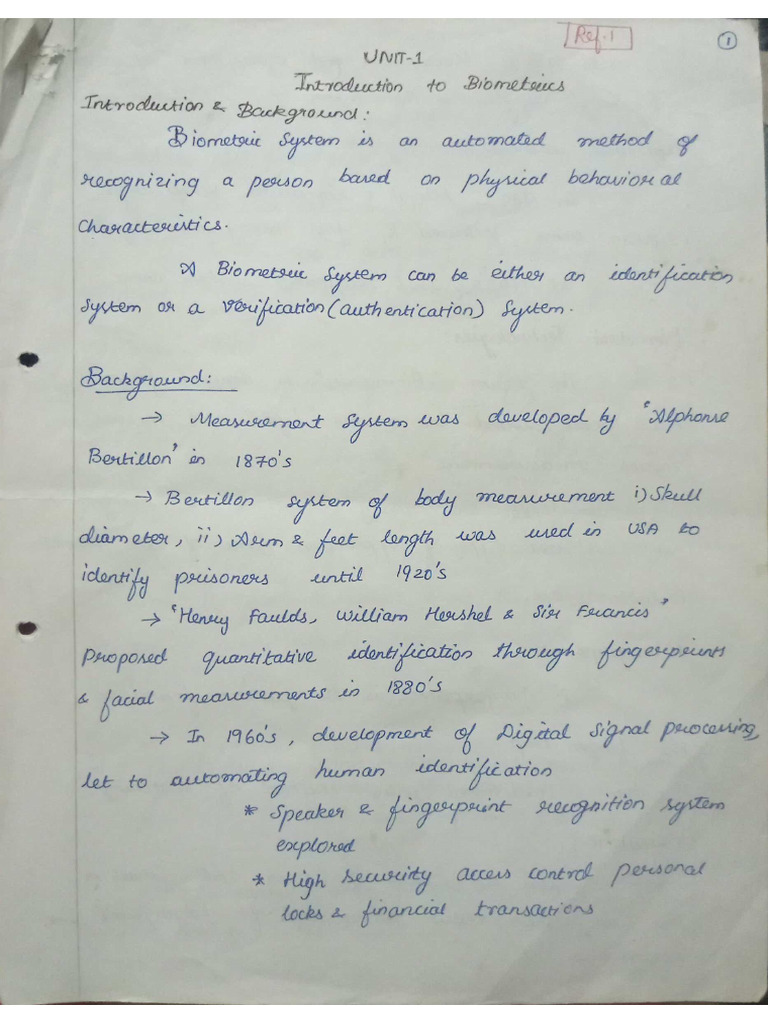 Ref.1
1
UNIT-1
Introduction to Biometrics
Introduction & Background:
Biometric System is an automated method of
recognizing a person based on physical behavior al
characteristics.
A Biometric System can be either an identification
System or a Verification (authentication) System.
Background:
→ Measurement System was developed by "Alphonse
Bertillon" in 1870's
→ Bertillon system of body measurement i) Skull
diameter, ii) Arm & feet length was used in USA to
identify prisoners until 1920's
→ "Henry Faulds, William Hershel & Sir Francis"
Proposed quantitative identification through fingerprints
& facial measurements in 1880's
→ In 1960's, development of Digital Signal processing,
let to automating human identification
* Speaker & fingerprint recognition system
explored
* High security access control personal
locks & financial transactions